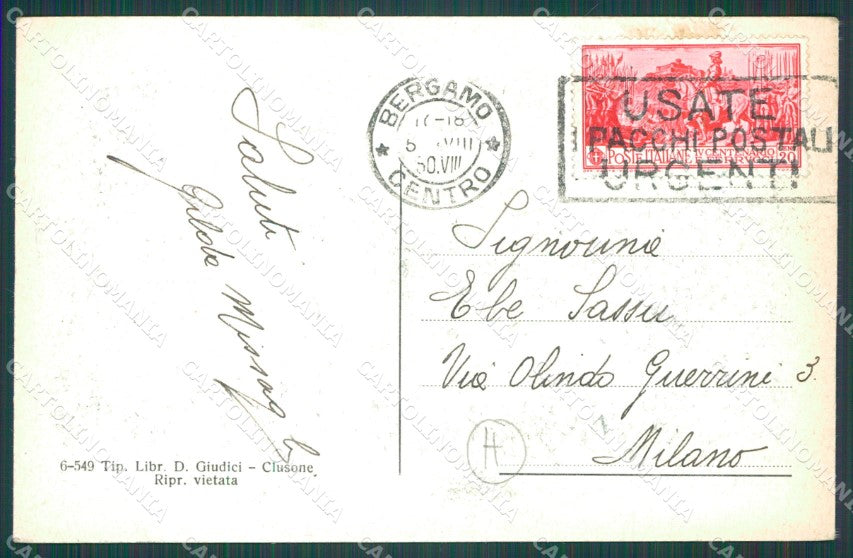 Saluti
Gilda
BERGAMO
17-18
VIII
CENTRO
USATE
PACCHI POSTALI
URGENTI
POSTE ITALIANE V CENTENARIO
20
Signorina
Ebe Sassu
Via Olindo Guerrini 3
Milano
H
6-549 Tip. Libr. D. Giudici - Clusone
Ripr. vietata
CARTOLINOMANIA